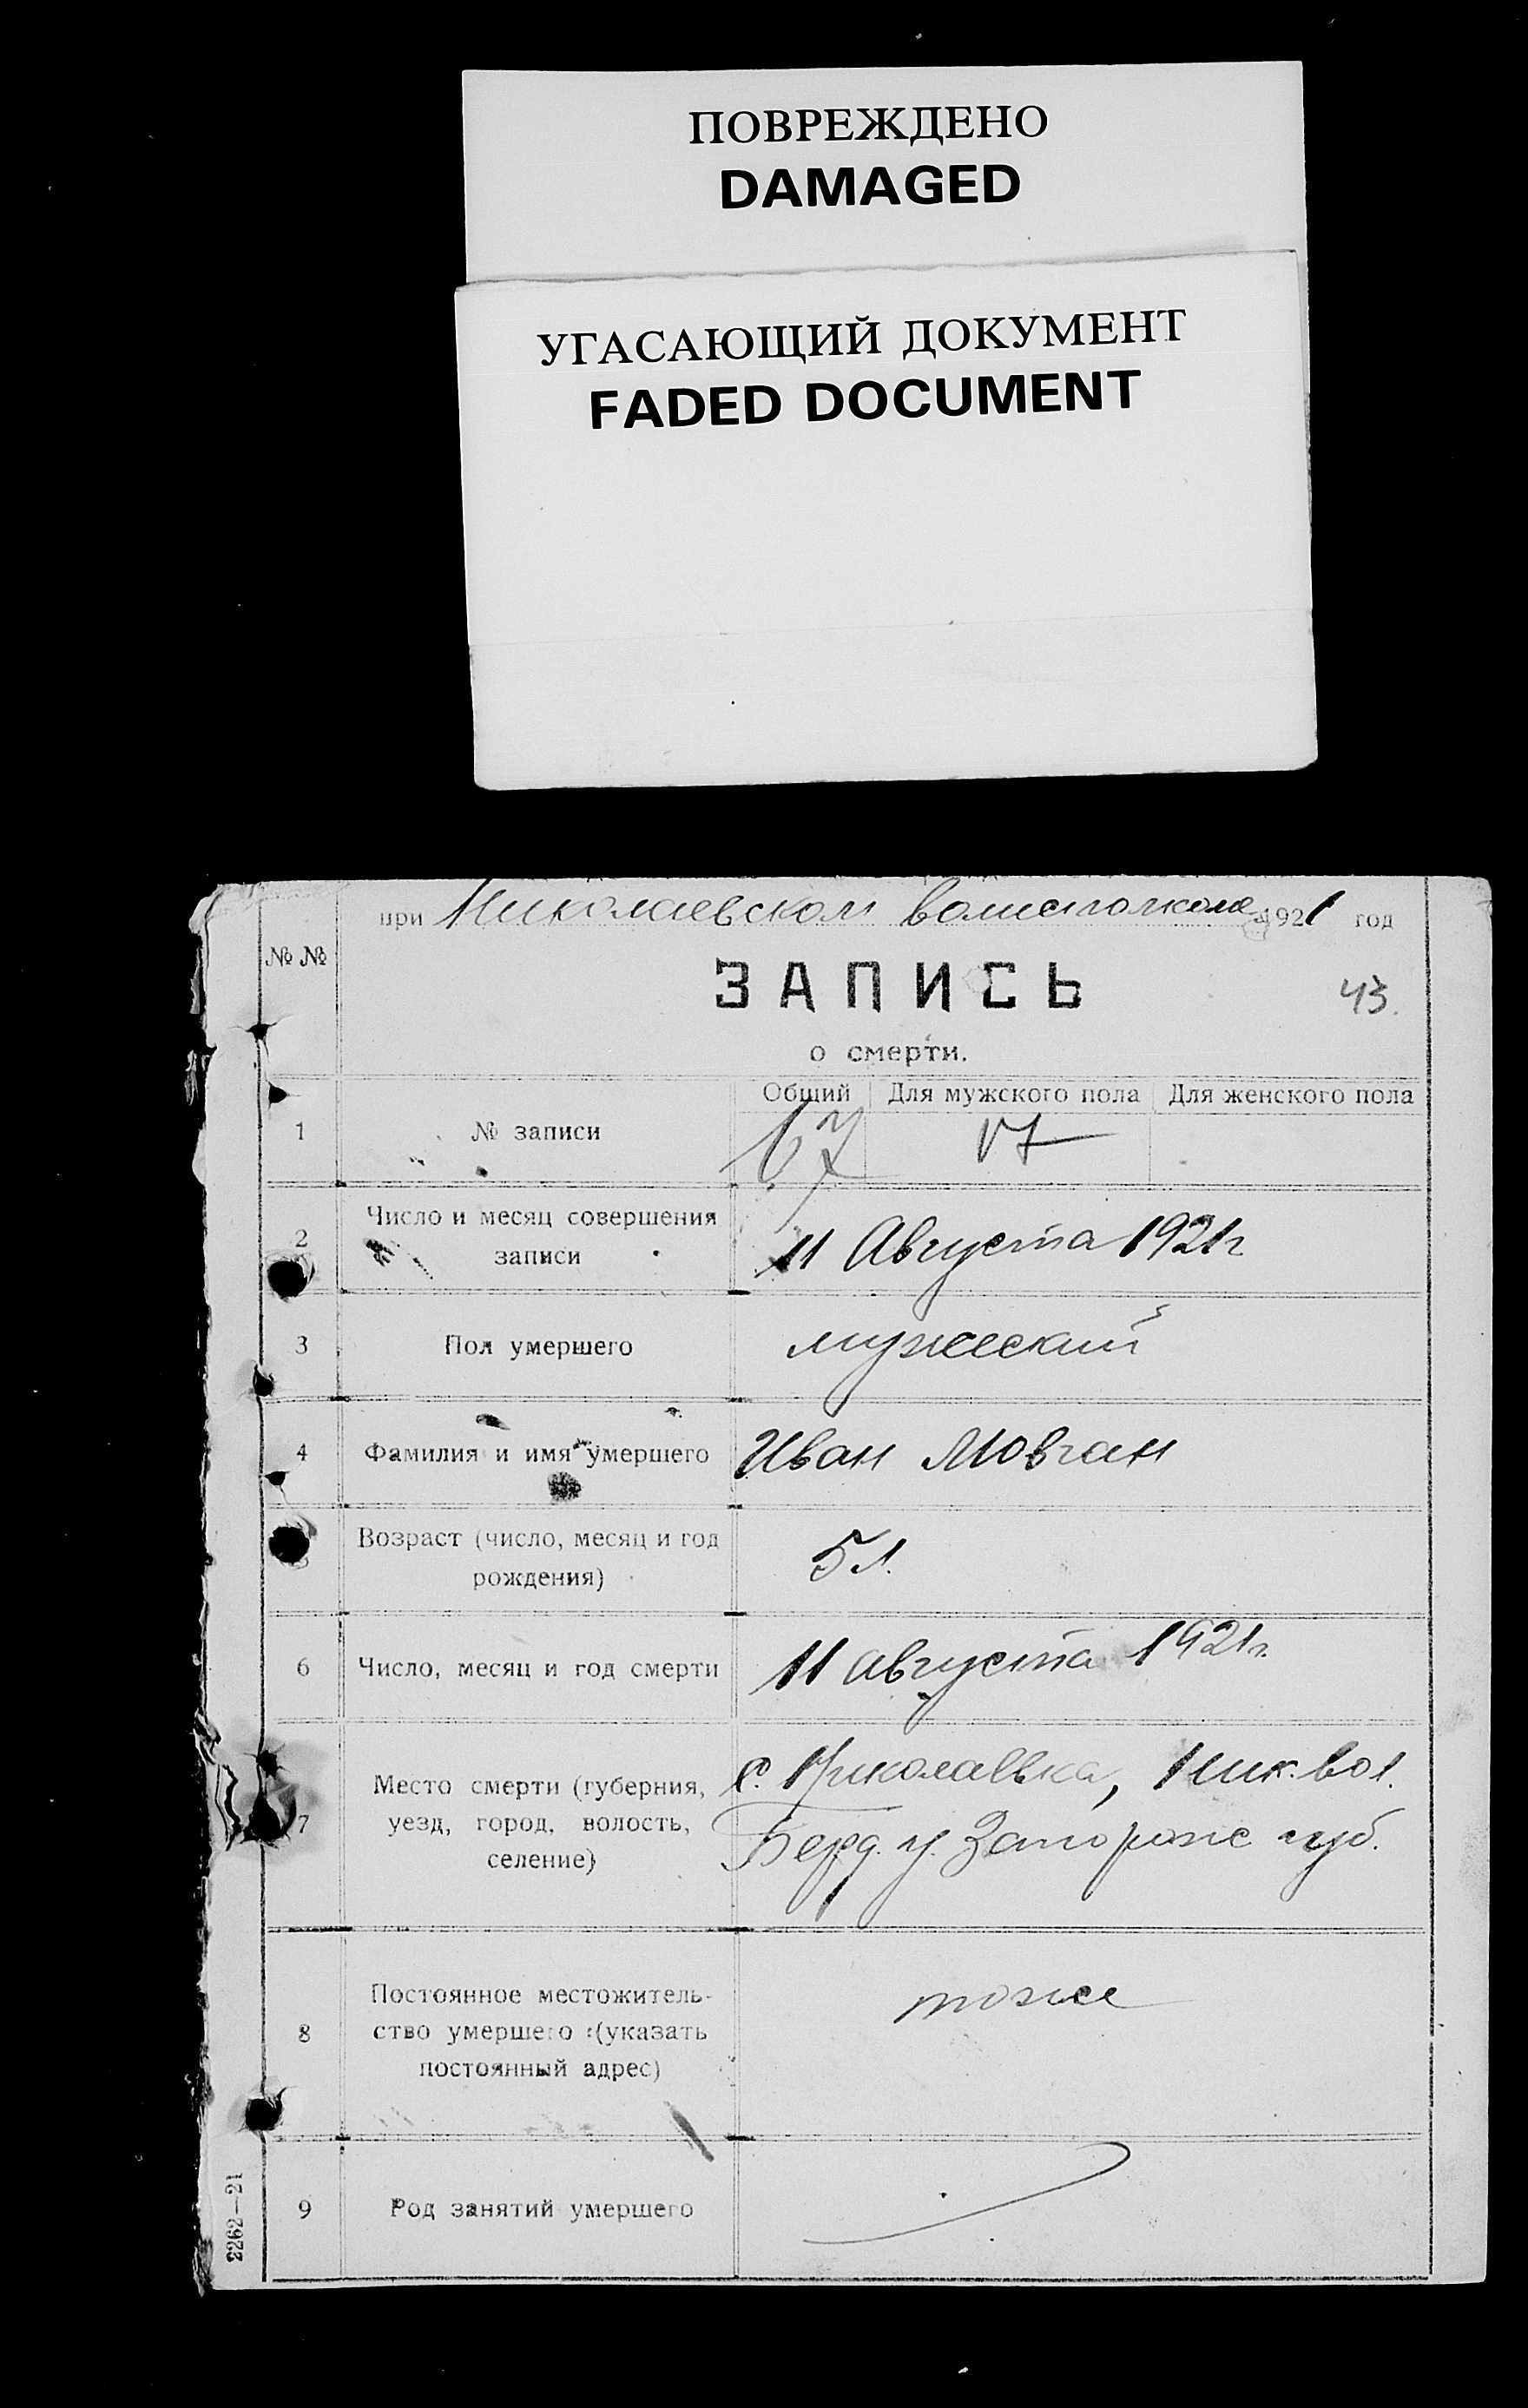 ПОВРЕЖДЕНО
DAMAGED
УГАСАЮЩИЙ ДОКУМЕНТ
FADED DOCUMENT
при Николаевском волисполкоме 1921 год
№ №
ЗАПИСЬ
43.
о смерти.
Общий Для мужского пола Для женского пола
1 № записи 67 17
2 Число и месяц совершения
записи 11 Августа 1921 г
3 Пол умершего мужеский
4 Фамилия и имя умершего Иван Мовчан
Возраст (число, месяц и год
рождения) 5 л.
6 Число, месяц и год смерти 11 августа 1921 г.
Место смерти (губерния, с. Николаевка, Ник. вол.
7 уезд, город, волость, Берд. у. Запорож губ.
селение)
Постоянное местожитель- тоже
8 ство умершего (указать
постоянный адрес)
9 Род занятий умершего
2262—21